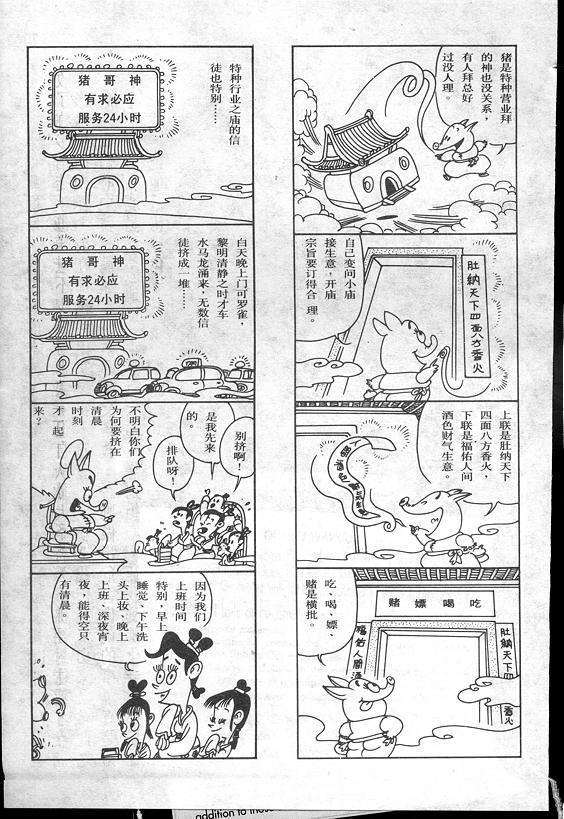 猪是特种营业拜
的神也没关系，
有人拜总好
过没人理。
自己变间小庙
接生意，开庙
宗旨要订得合理。
肚纳天下四面八方香火
上联是肚纳天下
四面八方香火，
下联是福佑人间
酒色财气生意。
吃、喝、嫖、
赌是横批。
赌嫖喝吃
肚纳天下四
香火
福佑人间酒
特种行业之庙的信
徒也特别……
猪哥神
有求必应
服务24小时
白天晚上门可罗雀，
黎明清静之时才车
水马龙涌来，无数信
徒挤成一堆……
猪哥神
有求必应
服务24小时
别挤啊！
是我先来
的。
排队呀！
不明白你们
为何要挤在
清晨
时刻
才一起
来？
因为我们
上班时间
特别，早上
睡觉、下午洗
头上妆、晚上
上班、深夜宵
夜，能得空只
有清晨。
addition to those